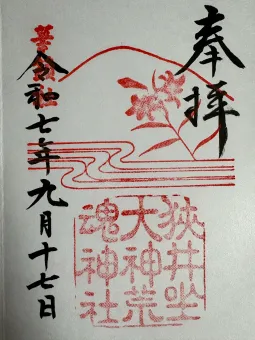 奉拝
狭井坐
大神荒
魂神社
令和七年九月十七日